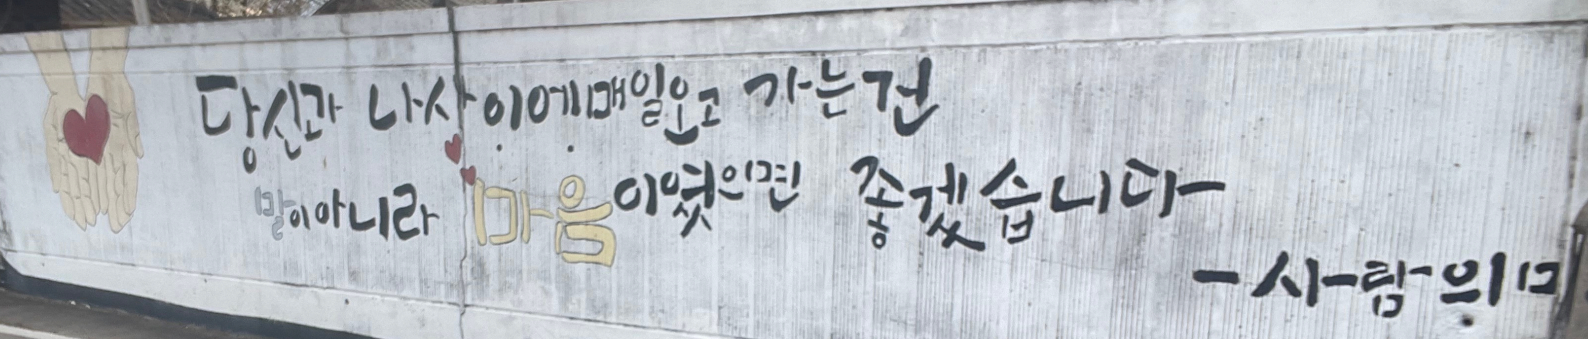 당신과 나사이에 매일 오고 가는건
말이아니라 마음이였으면 좋겠습니다
-사람의미